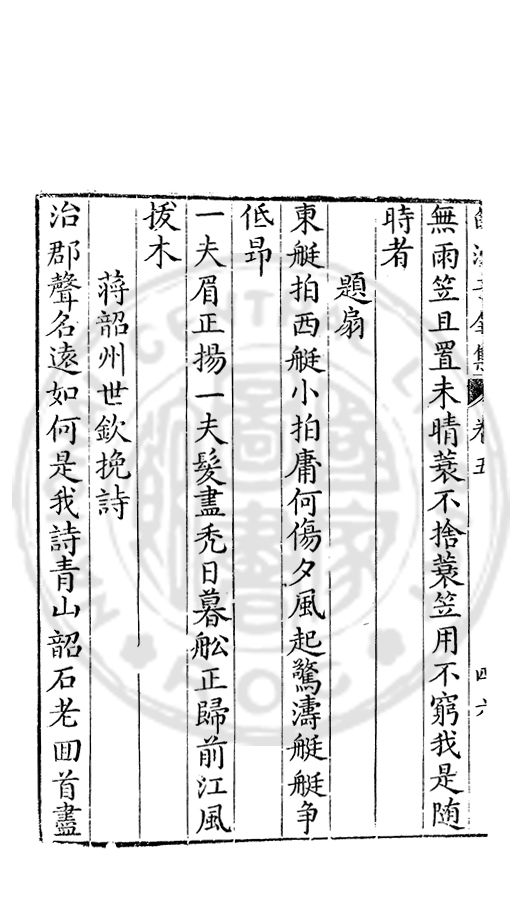 卷五
四六
無雨笠且置未晴蓑不捨蓑笠用不窮我是随
時者
題扇
東艇拍西艇小拍庸何傷夕風起驚濤艇艇争
低昻
一夫眉正揚一夫髮盡禿日暮舩正歸前江風
拔木
蒋韶州世欽挽詩
治郡聲名遠如何是我詩青山韶石老囬首盡